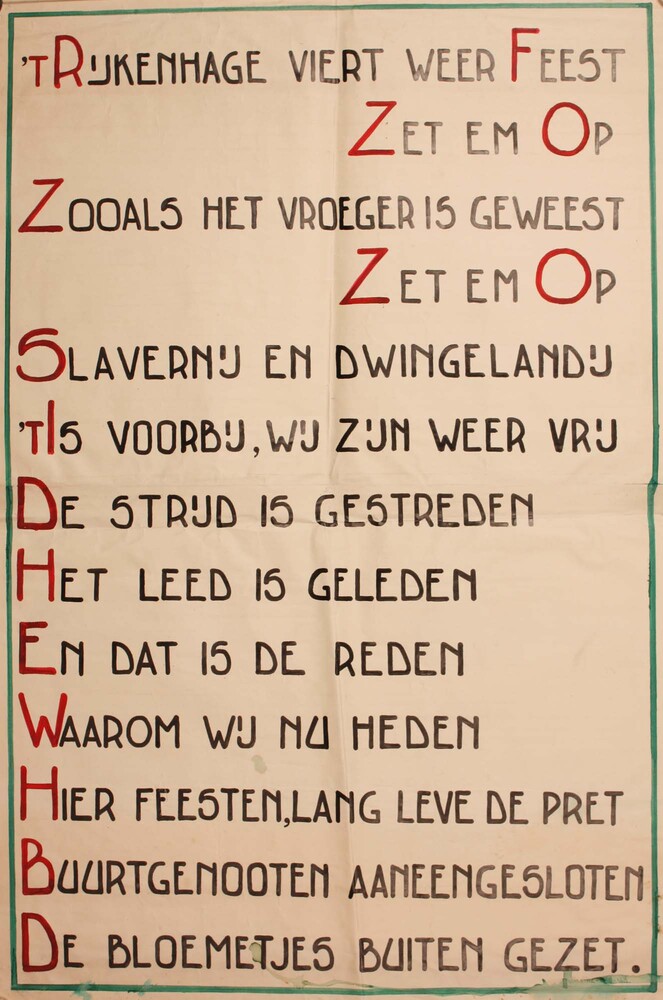 'T RIJKENHAGE VIERT WEER FEEST
ZET EM OP
ZOOALS HET VROEGER IS GEWEEST
ZET EM OP
SLAVERNIJ EN DWINGELANDIJ
'T IS VOORBIJ, WIJ ZIJN WEER VRIJ
DE STRIJD IS GESTREDEN
HET LEED IS GELEDEN
EN DAT IS DE REDEN
WAAROM WIJ NU HEDEN
HIER FEESTEN, LANG LEVE DE PRET
BUURTGENOOTEN AANEENGESLOTEN
DE BLOEMETJES BUITEN GEZET.